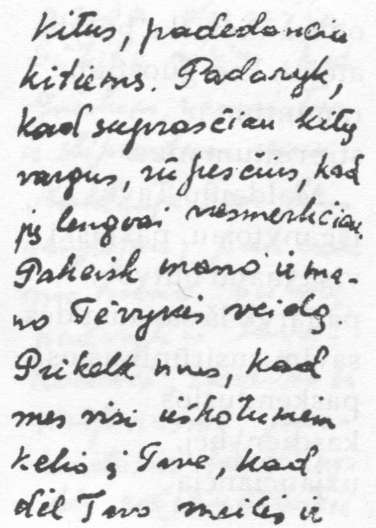 kitus, padedančiu
kitiems. Padaryk,
kad suprasčiau kitų
vargus, rūpesčius, kad
jų lengvai nesmerkčiau.
Pakeisk mano ir ma-
no Tėvynės veidą
Prikelk mus, kad
mes visi ieškotumem
kelio į Tave, kad
dėl Tavo meilės ir